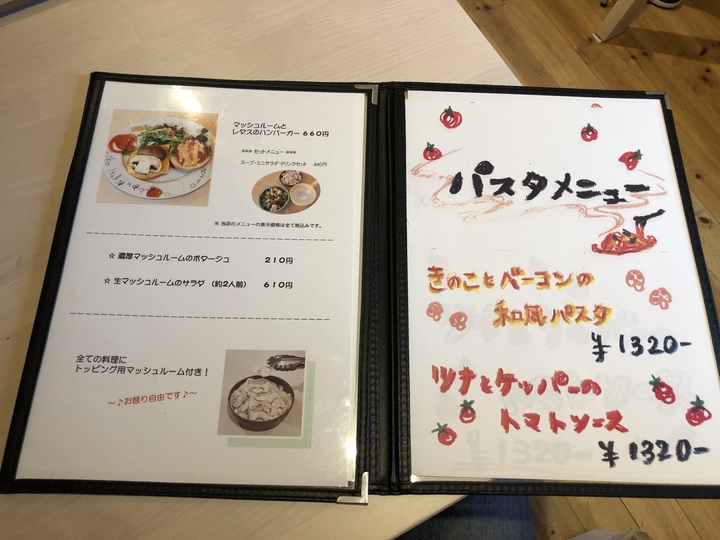 マッシュルームと
レタスのハンバーガー 660円
*** セットメニュー ***
スープ・ミニサラダ・ドリンクセット 440円
※ 当店のメニューの表示価格は全て税込みです。
☆ 濃厚マッシュルームのポタージュ 210円
☆ 生マッシュルームのサラダ (約2人前) 610円
全ての料理に
トッピング用マッシュルーム付き！
～♪お替り自由です♪～
パスタメニュー
きのことベーコンの
和風パスタ
¥1320-
ツナとケッパーの
トマトソース
¥1320-